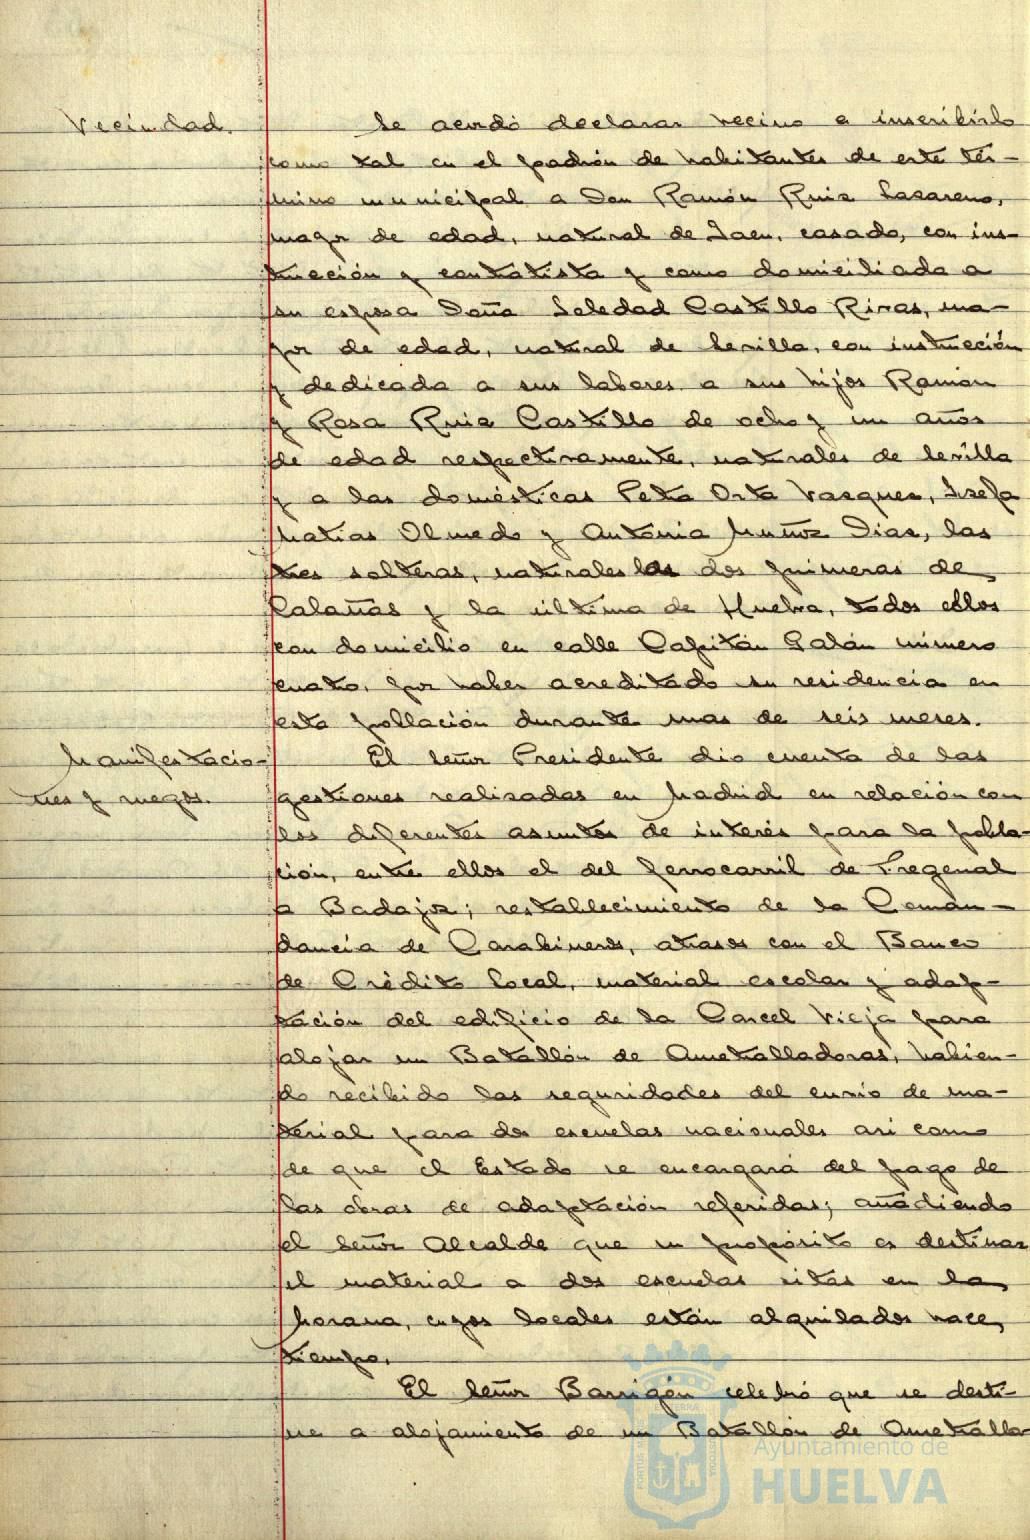 Vecindad. Se acordó declarar vecino e inscribirlo
como tal en el padrón de habitantes de este tér-
mino municipal a Don Ramón Ruiz Casareno,
mayor de edad, natural de Jaen, casado, con ins-
trucción y contratista y como domiciliada a
su esposa Doña Soledad Castillo Rivas, ma-
yor de edad, natural de Sevilla, con instrucción
y dedicada a sus labores a sus hijos Ramón
y Rosa Ruiz Castillo de ocho y un años
de edad respectivamente, naturales de Sevilla
y a las domésticas Petra Orta Vasquez, Josefa
Matias Olmedo y Antonia Muñoz Dias, las
tres solteras, naturales las dos primeras de
Calañas y la última de Huelva, todos ellos
con domicilio en calle Capitán Galán número
cuatro, por haber acreditado su residencia en
esta población durante mas de seis meses.
Manifestacio- El señor Presidente dio cuenta de las
nes y ruegos. gestiones realisadas en Madrid en relación con
los diferentes asuntos de interés para la pobla-
ción, entre ellos el del ferrocarril de Fregenal
a Badajoz; restablecimiento de la Coman-
dancia de Carabineros, atrasos con el Banco
de Crédito Local, material escolar y adap-
tación del edificio de la Carcel Vieja para
alojar un Batallón de Ametralladoras, habien-
do recibido las seguridades del envio de ma-
terial para dos escuelas nacionales asi como
de que el Estado se encargará del pago de
las obras de adaptación referidas; añadiendo
el señor Alcalde que su propósito es destinar
el material a dos escuelas sitas en la
Morana, cuyos locales están alquilados hace
tiempo.
El señor Barrigón celebró que se desti-
ne a alojamiento de un Batallón de Ametralla-
Ayuntamiento de
HUELVA